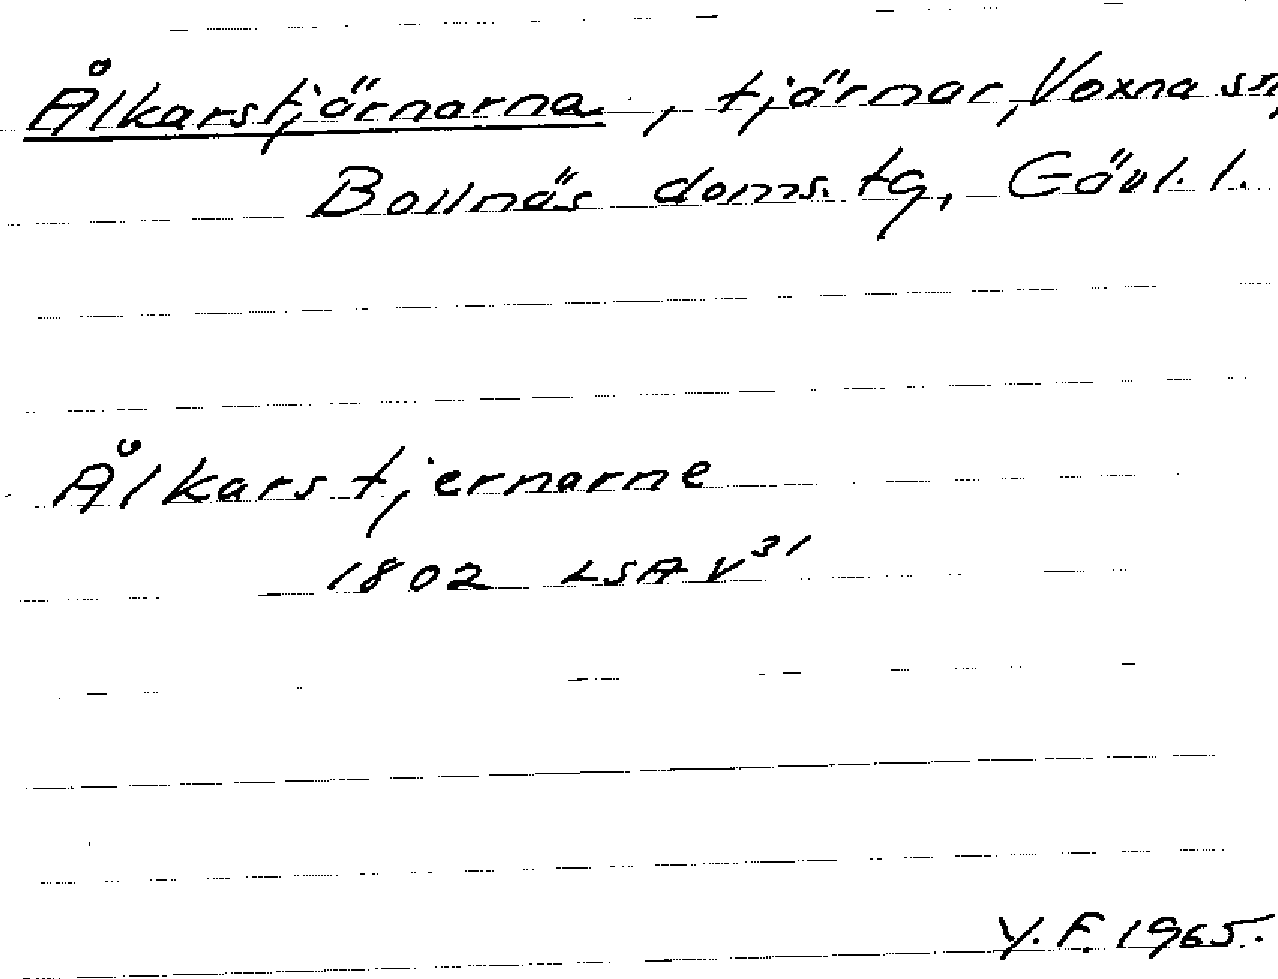 Ålkarstjärnarna, tjärnar, Voxna sn,
Bollnäs doms.tg, Gävl. l.
Ålkarstjernarne
1802 LSA V³¹
Y. F. 1965.